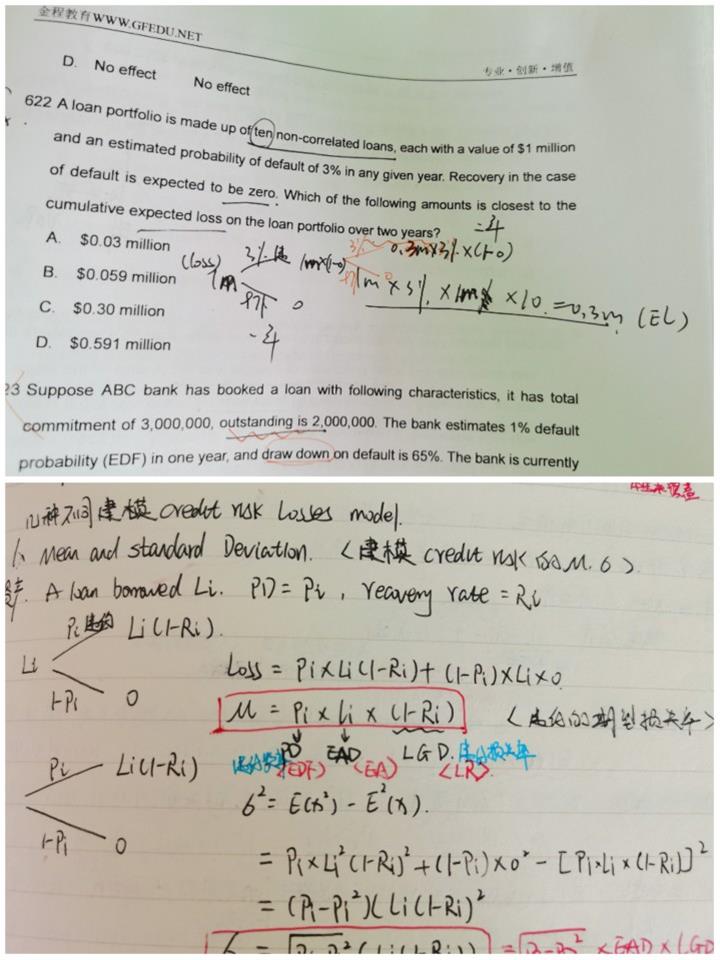 金程教育WWW.GFEDU.NET
专业·创新·增值
D. No effect No effect
622 A loan portfolio is made up of ten non-correlated loans, each with a value of $1 million
and an estimated probability of default of 3% in any given year. Recovery in the case
of default is expected to be zero. Which of the following amounts is closest to the
cumulative expected loss on the loan portfolio over two years?
A. $0.03 million
B. $0.059 million
C. $0.30 million
D. $0.591 million
(loss)
3%
0
0.3m×3%×(1-0)
×10=0.3m (EL)
23 Suppose ABC bank has booked a loan with following characteristics, it has total
commitment of 3,000,000, outstanding is 2,000,000. The bank estimates 1% default
probability (EDF) in one year, and draw down on default is 65%. The bank is currently
几种不同建模 credit risk Losses model.
1. Mean and standard Deviation. <建模 credit risk 的 μ. σ>
A loan borrowed Li. PD = Pi, recovery rate = Ri
Pi Li(1-Ri).
Li
1-Pi 0
Loss = Pi×Li(1-Ri)+(1-Pi)×Li×0
μ = Pi × Li × (1-Ri)
PD EAD LGD.
<EDF> <EA> <LR>
Pi Li(1-Ri)
1-Pi 0
σ² = E(x²) - E²(x).
= Pi×Li²(1-Ri)²+(1-Pi)×0² - [Pi×Li×(1-Ri)]²
= (Pi-Pi²)(Li(1-Ri)²